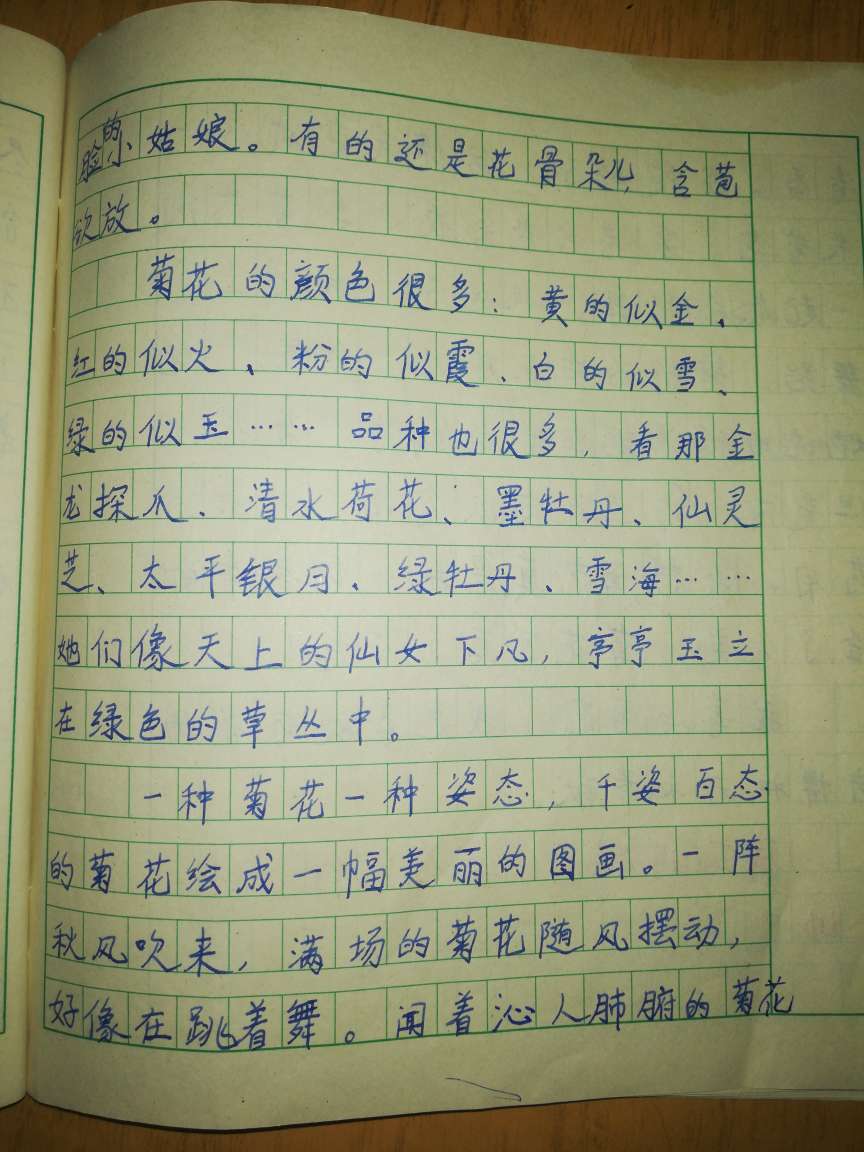 脸的小姑娘。有的还是花骨朵儿,含苞
欲放。
菊花的颜色很多:黄的似金、
红的似火、粉的似霞、白的似雪、
绿的似玉……品种也很多,看那金
龙探爪、清水荷花、墨牡丹、仙灵
芝、太平银月、绿牡丹、雪海……
她们像天上的仙女下凡,亭亭玉立
在绿色的草丛中。
一种菊花一种姿态,千姿百态
的菊花绘成一幅美丽的图画。一阵
秋风吹来,满场的菊花随风摆动,
好像在跳着舞。闻着沁人肺腑的菊花